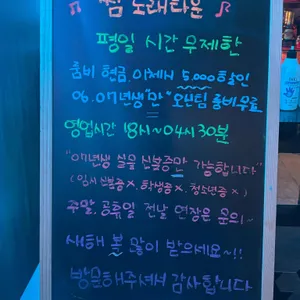 ♫ 썸 노래타운 ♪
평일 시간 무제한
룸비 현금, 이체시 5,000할인
06.07년생"만" 오신팀 룸비무료
영업시간 18시~04시30분
"07년생 실물 신분증만 가능합니다"
(임시 신분증 X, 학생증 X, 청소년증 X)
주말, 공휴일 전날 연장은 문의~
새해 복 많이 받으세요~!!
방문해주셔서 감사합니다